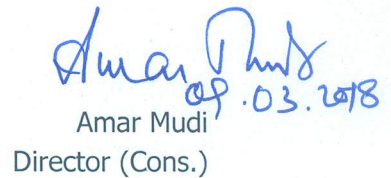 Amar Mudi
09.03.2018
Amar Mudi
Director (Cons.)